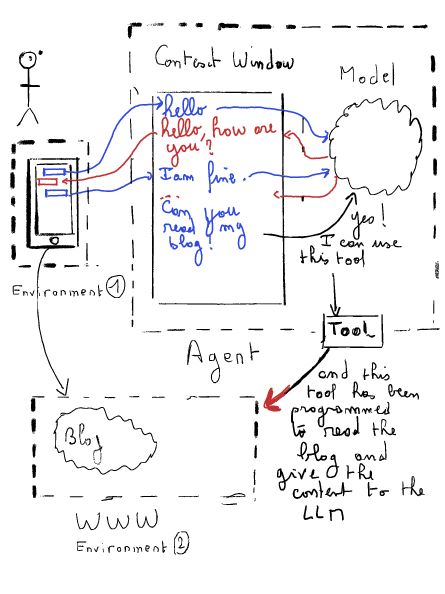 Context Window
Model
hello
hello, how are
you?
I am fine.
...
Can you
read my
blog?
yes!
I can use
this tool
Environment 1
Tool
Agent
and this
tool has been
programmed
to read the
blog and
give the
content to the
LLM
Blog
WWW
Environment 2